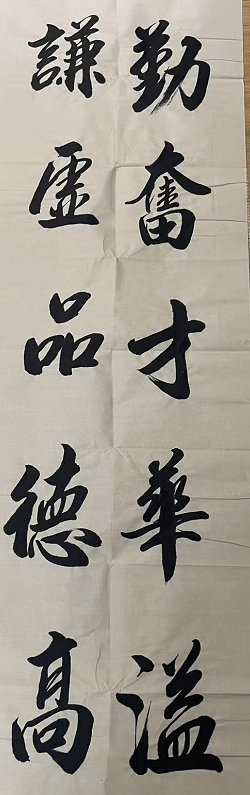 勤奮才華溢
謙虛品德高